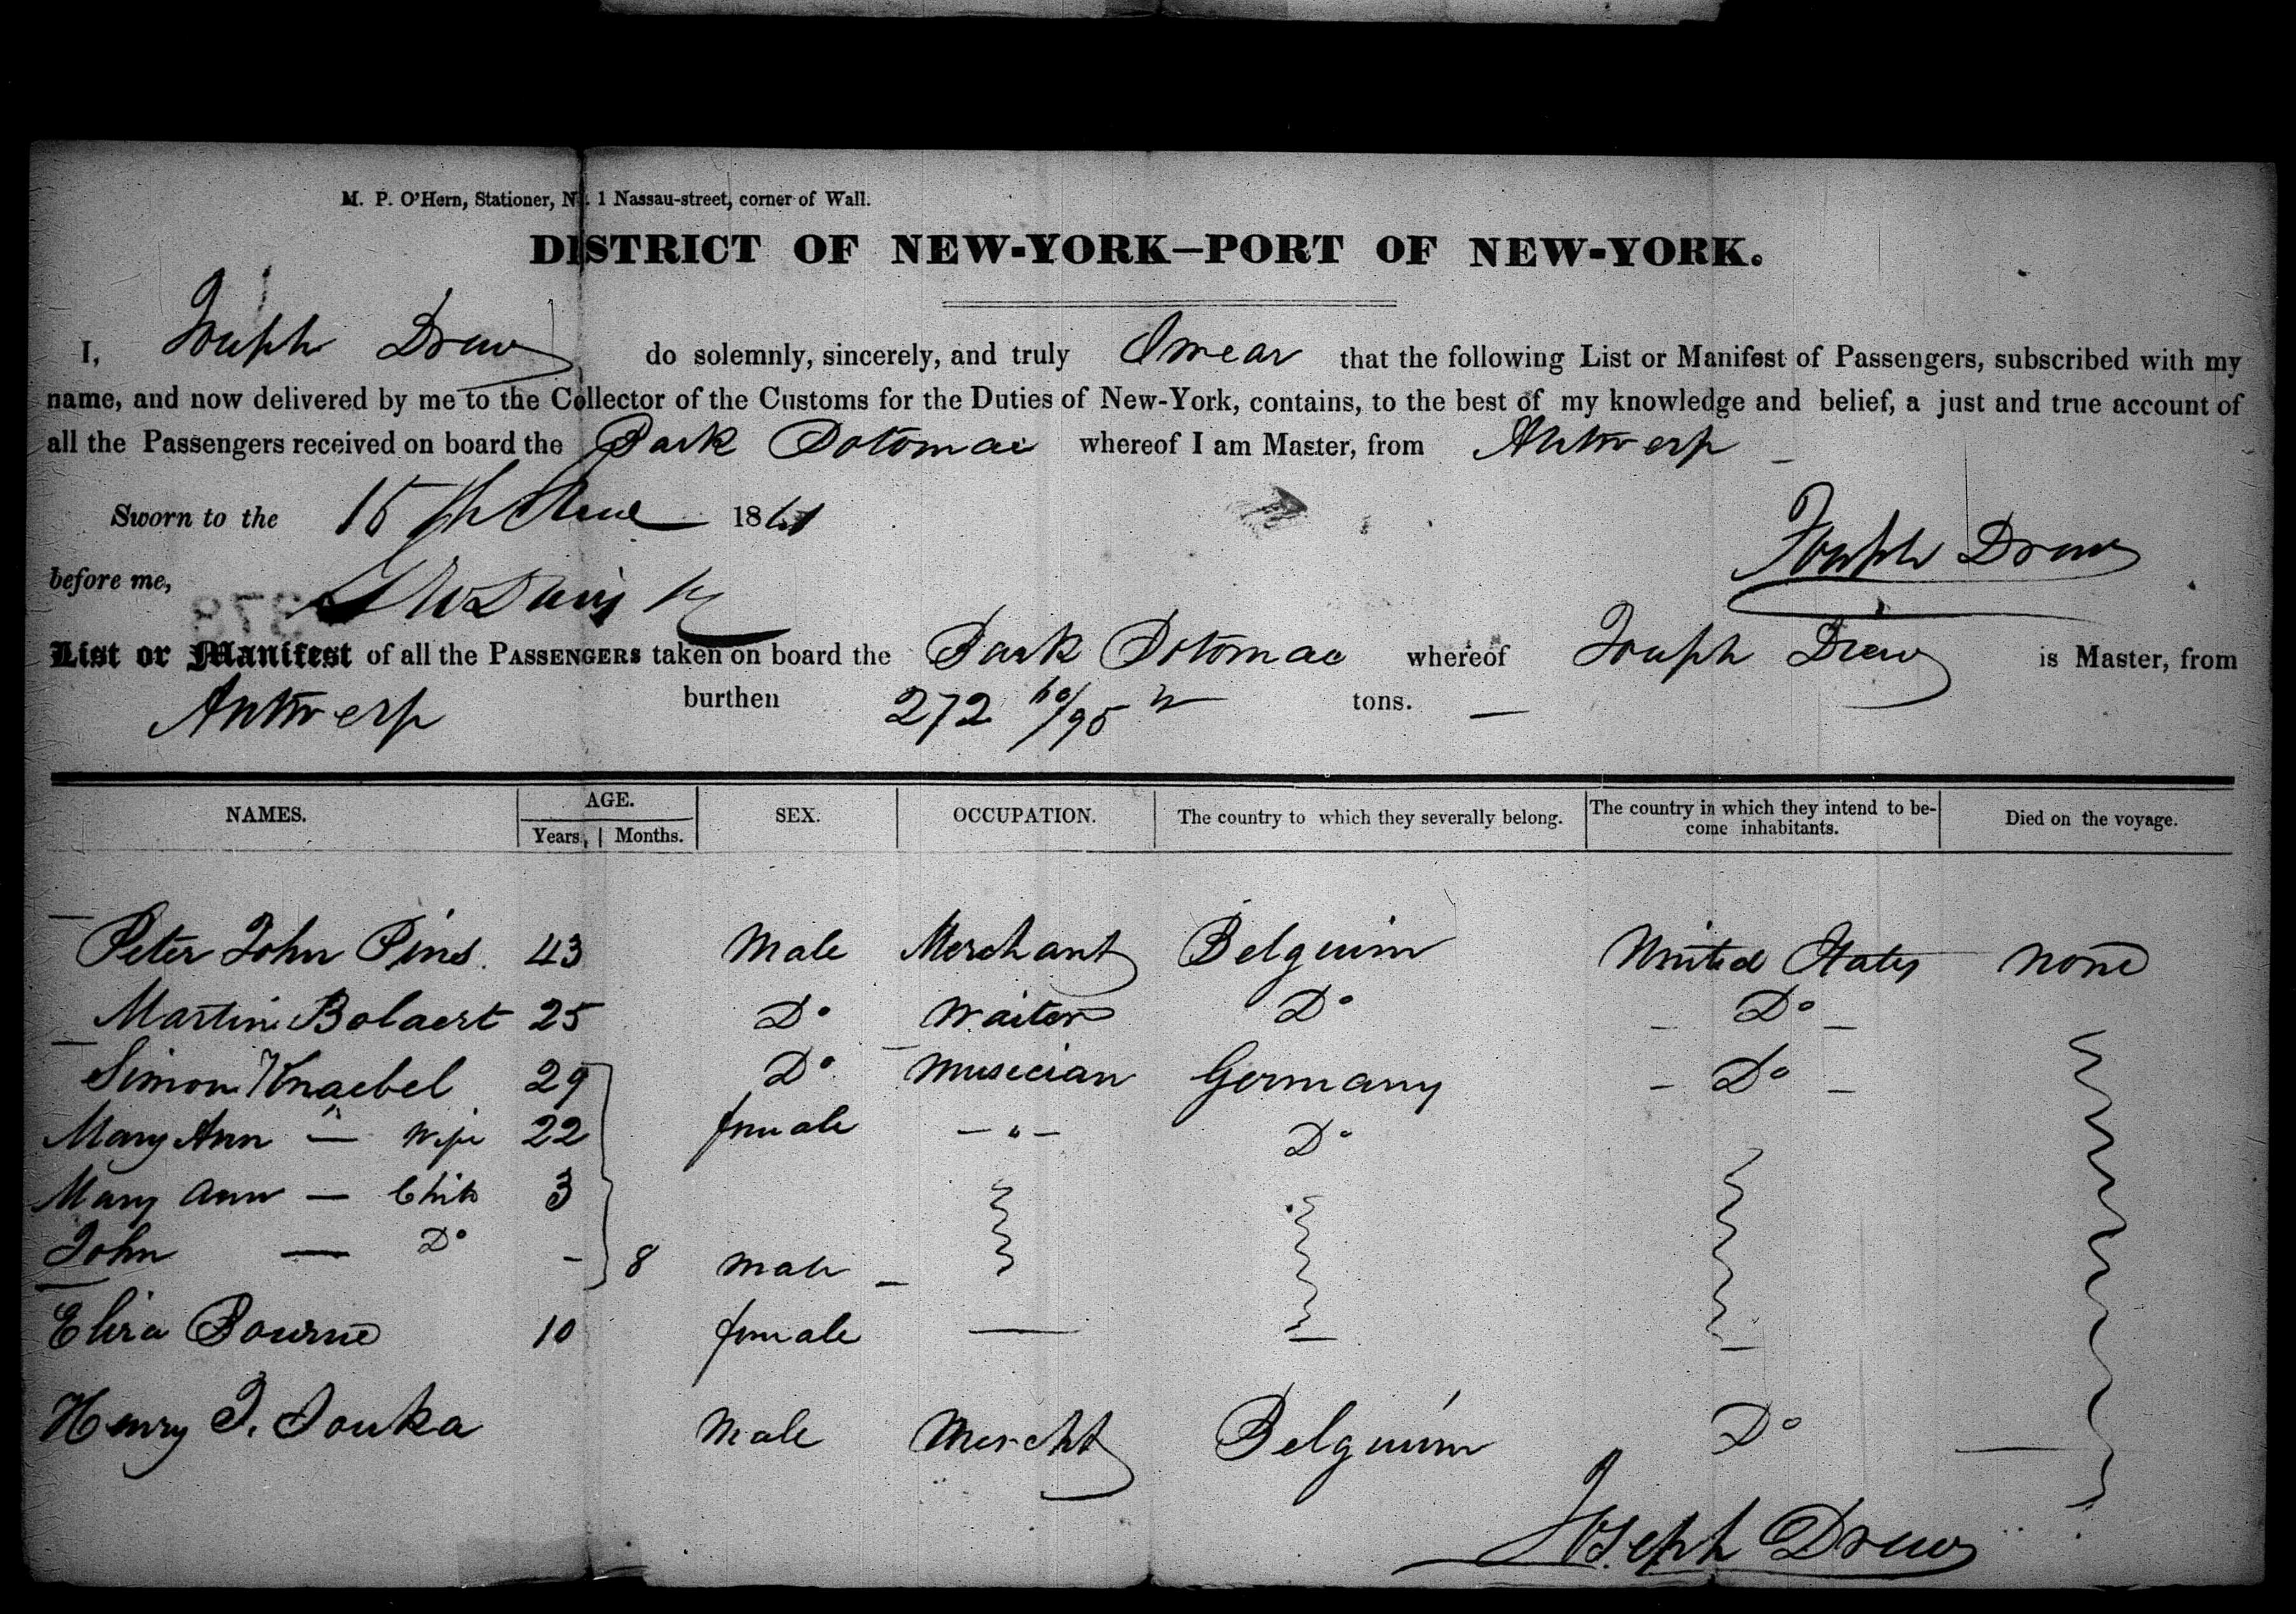 M. P. O'Hern, Stationer, No. 1 Nassau-street, corner of Wall.
DISTRICT OF NEW-YORK—PORT OF NEW-YORK.
I, Joseph Drew do solemnly, sincerely, and truly Swear that the following List or Manifest of Passengers, subscribed with my
name, and now delivered by me to the Collector of the Customs for the Duties of New-York, contains, to the best of my knowledge and belief, a just and true account of
all the Passengers received on board the Bark Potomac whereof I am Master, from Antwerp
Sworn to the 15th June 1861
Joseph Drew
before me,
378
List or Manifest of all the PASSENGERS taken on board the Bark Potomac whereof Joseph Drew is Master, from
Antwerp burthen 272 60/95 tons.
NAMES. AGE. SEX. OCCUPATION. The country to which they severally belong. The country in which they intend to be-come inhabitants. Died on the voyage.
Years. Months.
Peter John Pins. 43 Male Merchant Belguim United States none
Martin Bolaert 25 Do Waiter Do Do
Simon Knaebel 29 Do Musician Germany Do
Mary Ann — Wife 22 female — " — Do
Mary Ann — Child 3
John — Do - 8 Male
Eliza Bourne 10 female —
Henry J. Souka Male Mercht Belguim Do
Joseph Drew